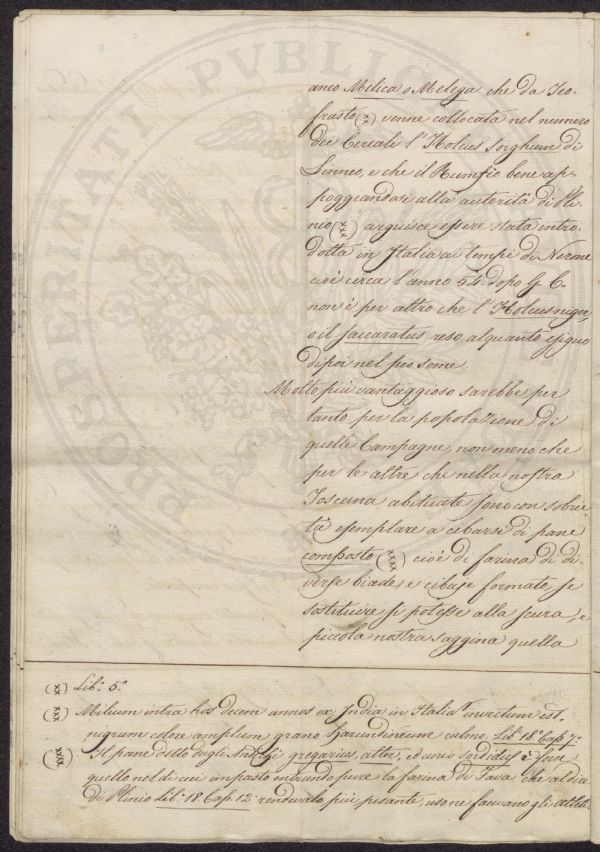 anco Melica o Melega che da Teo-
frasto (x) venne collocata nel numero
dei Cereali l'Holcus Sorghum di
Linneo, e che il Rumfio bene ap-
poggiandosi alla autorità di Pli-
nio (xxx) arguisce essere stata intro-
dotta in Italia ai tempi di Nerone
cioè circa l'anno 54. dopo G. C.
non è per altro che l'Holcus niger,
o il saccaratus reso alquanto esiguo
dipoi nel suo seme.
Molto più vantaggioso sarebbe per
tanto per la popolazione di
quelle Campagne, non meno che
per le altre che nella nostra
Toscana abituate sono con sobrie-
tà esemplare a cibarsi di pane
composto (xxxx) cioè di farina di di-
verse biade, e cibaje formato, se
sostituire si potesse alla scura, e
piccola nostra saggina quella
(xx) Lib. 5.°
(xxx) Milium intra hos decem annos ex India in Italia invectum est
nigrum colore amplum grano harundineum culmo. Lib. 18.° Cap. 7.°
(xxxx) Il pane detto dagli Antichi gregarius, alter, ed anco sordidus è forse
quello nel di cui impasto entrando pure la farina di Fava che al dire
di Plinio Lib. 18 Cap. 12. rendevalo più pesante, uso ne facevano gli atleti
PROSPERITATI PVBLIC